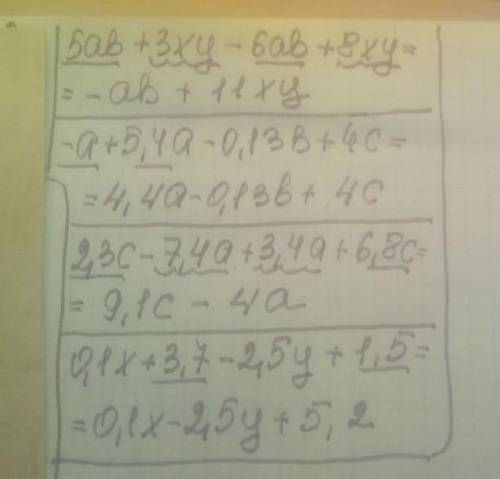 5ab + 3xy - 6ab + 8xy =
= - ab + 11xy
-a + 5,4a - 0,13b + 4c =
= 4,4a - 0,13b + 4c
2,3c - 7,4a + 3,4a + 6,8c =
= 9,1c - 4a
0,1x + 3,7 - 2,5y + 1,5 =
= 0,1x - 2,5y + 5,2